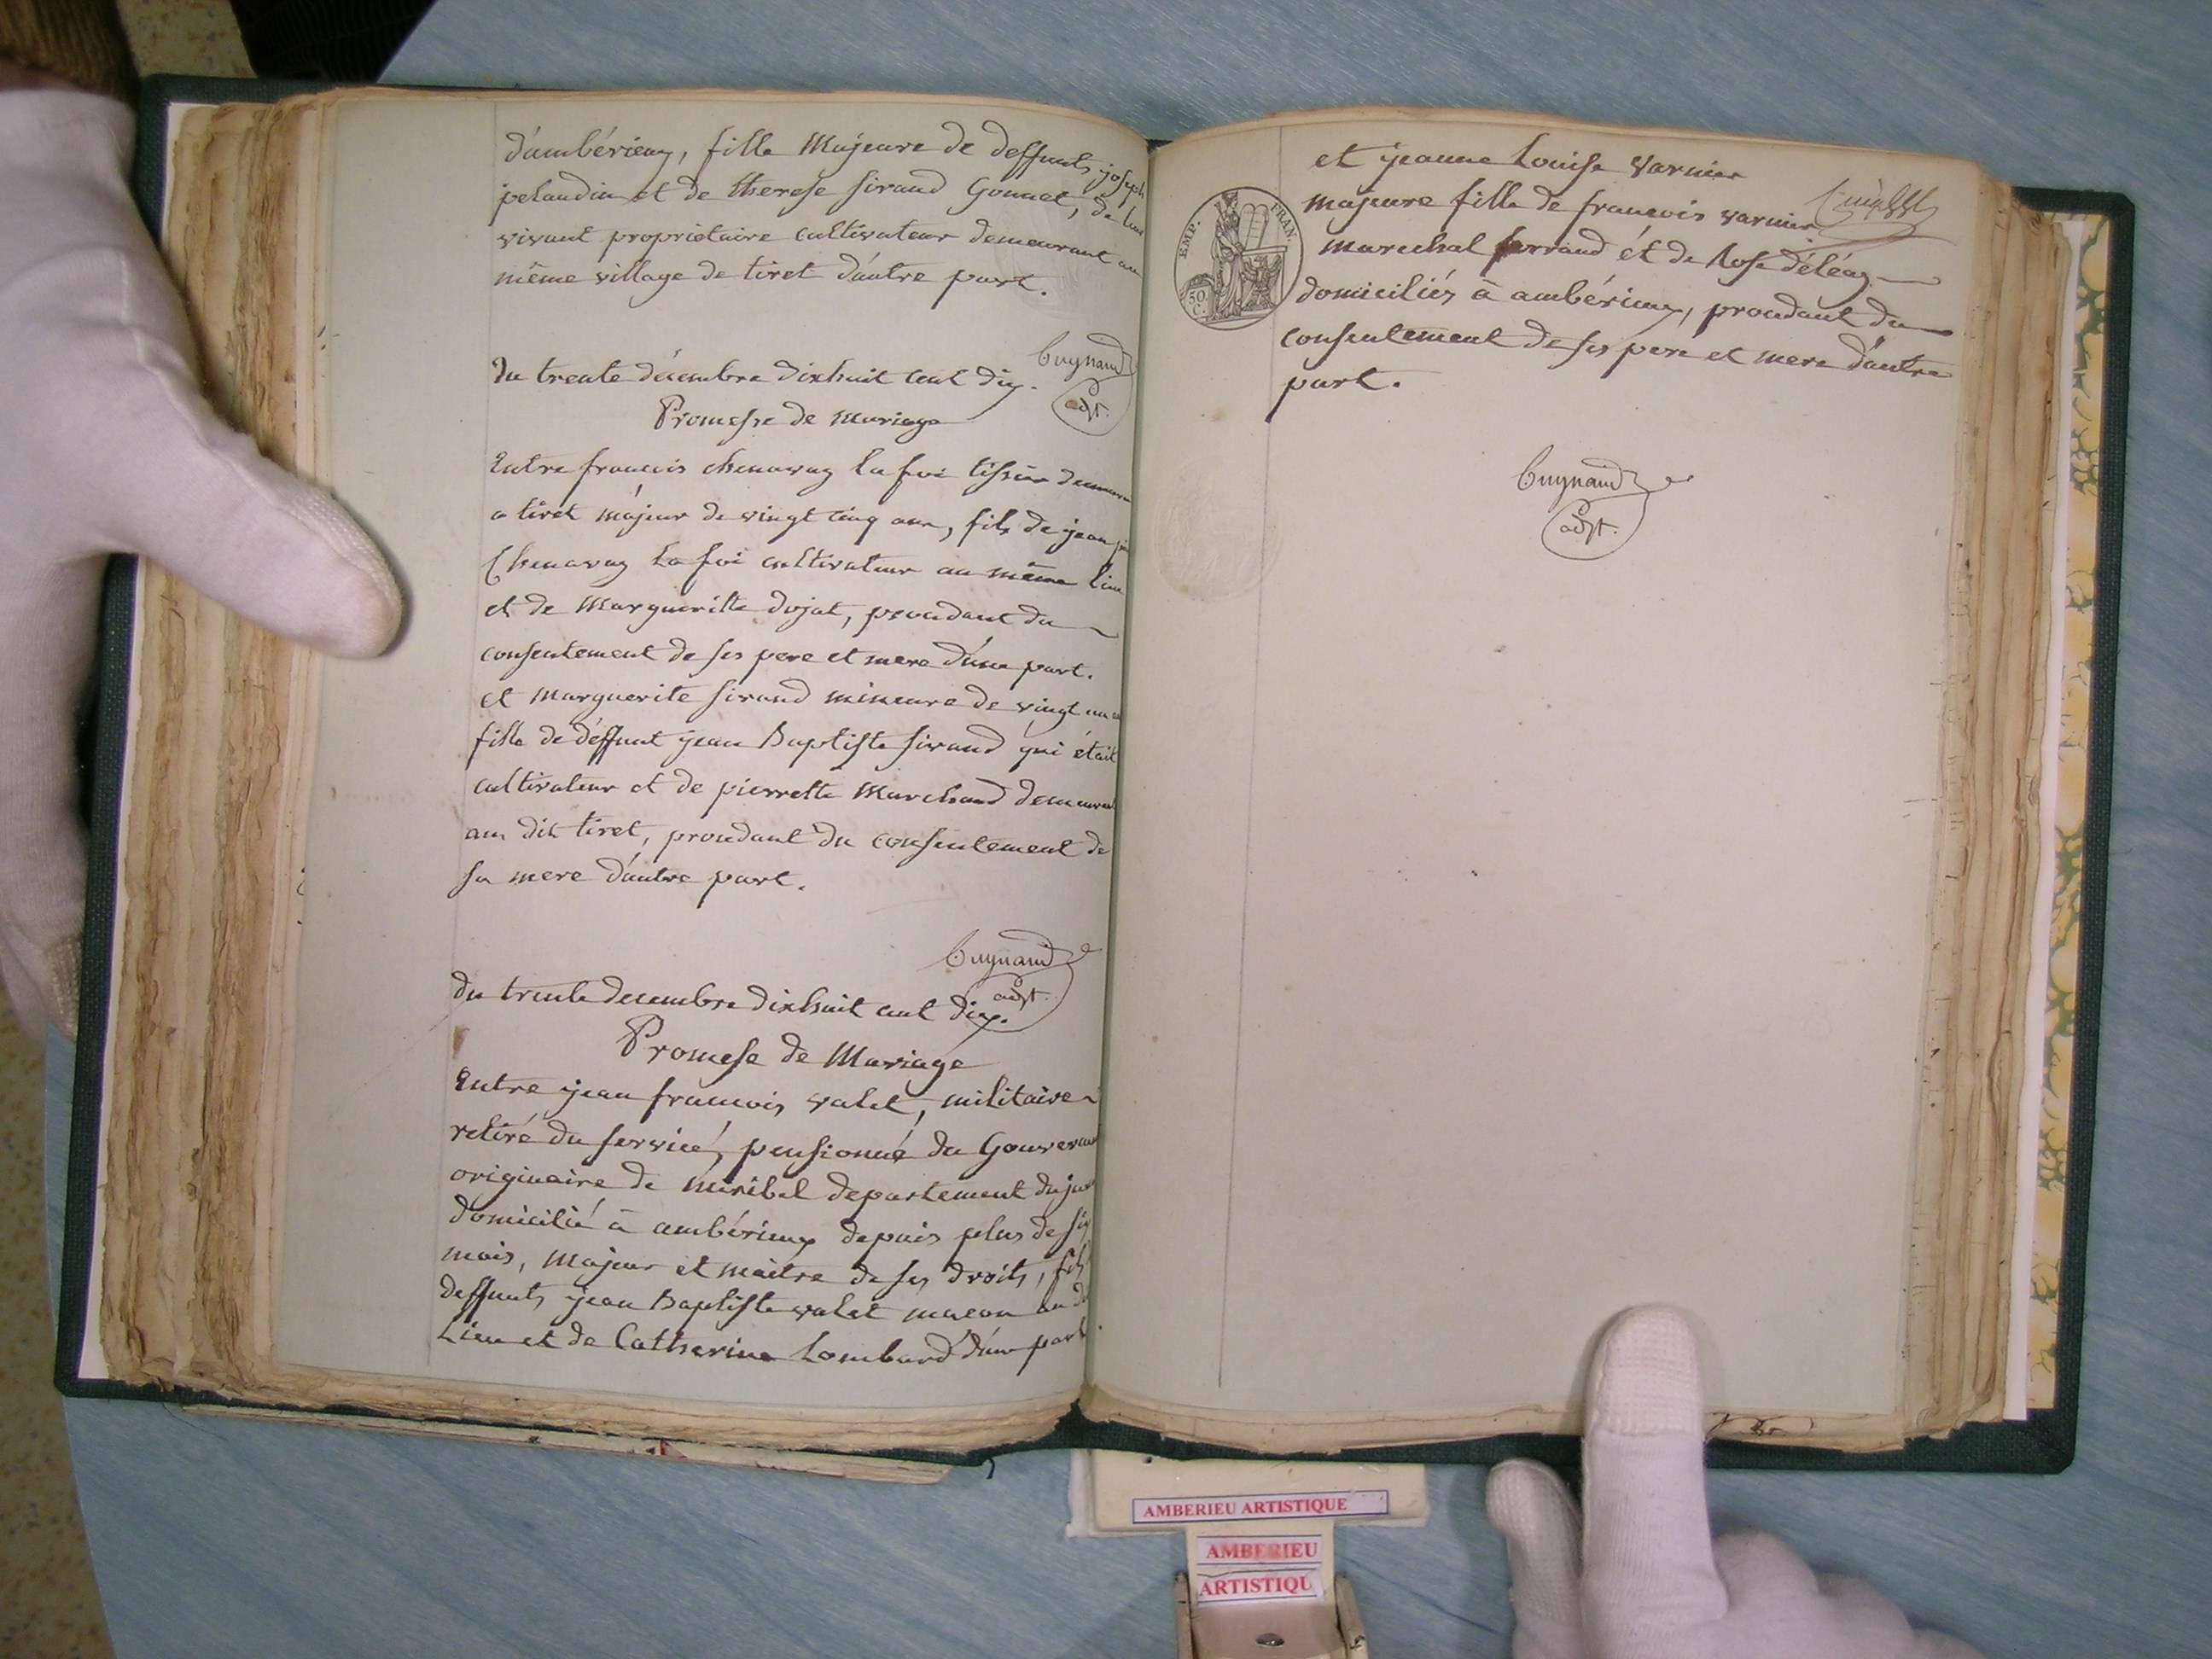 d'ambérieux, fille Majeure de deffunts joseph
pelaudin et de therese sirand Gonnet, de leur
vivant propriétaire cultivateur demeurant au
même village de tiret d'autre part.
Cuynaud
adjt.
Du trente décembre dixhuit cent dix.
Promesse de mariage
Entre francois chenavaz la foi tissier
a tiret májeur de vingt cinq ans, fils de jean
Chenavaz la foi cultivateur au même lieu
et de Margueritte dujat, procédant du
consentement de ses pere et mere d'une part.
et marguerite sirand mineure de vingt un
fille de déffunt jean Baptiste sirand qui était
cultivateur et de pierrette Marchand demeurant
au dit tiret, procédant du consentement de
sa mere d'autre part.
Cuynaud
adjt.
du trente decembre dixhuit cent dix.
Promesse de Mariage
Entre jean francois valet, militaire
retiré du service, pensionné du
originaire de miribel departement du jura
domicilié à ambérieux depuis plus de six
mois, majeur et maitre de ses droits, fils
deffunts jean Baptiste valet macon au dit
Lieu et de Catherine Lombard d'une part.
et jeanne Louise Varnier
majeure fille de francois varnier
marechal ferrand et de Rose déléaz
domiciliés à ambérieux, procédant du
consentement de ses pere et mere d'autre
part.
EMP. FRAN.
50
C.
Cuynaud
adjt.
AMBERIEU ARTISTIQUE
AMBERIEU
ARTISTIQU